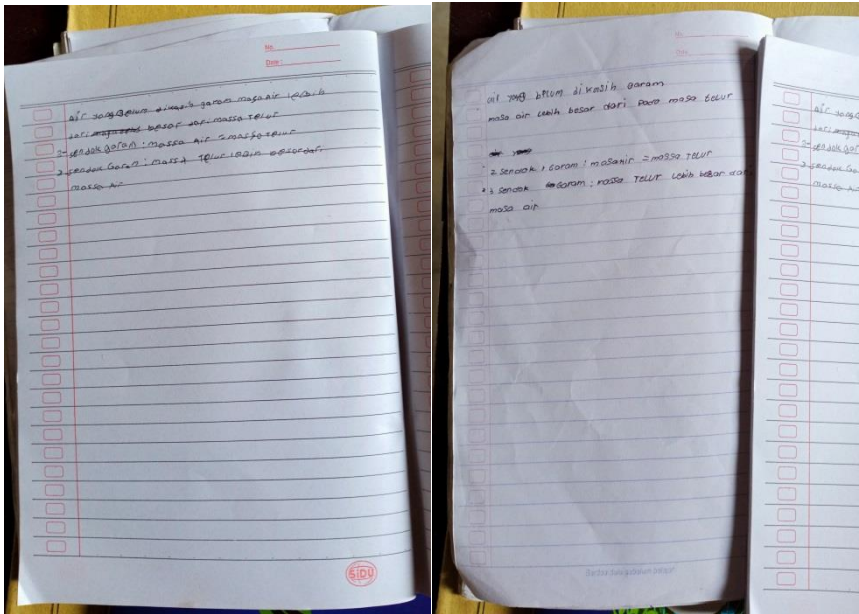 No.
Date:
air yang Belum dikasih garam masa air lebih
dari besar dari massa Telur
2- sendok garam : massa Air = massa telur
3 sendok Garam : massa Telur lebih besar dari
massa Air
SiDU
No.
Date.
air yang belum di kasih garam
masa air lebih besar dari pada masa telur
2 sendok , Garam : masa air = massa Telur
3 sendok Garam : massa TELUR lebih besar dari
masa air
air
dari
sendok gar
3 sendok Gar
massa A